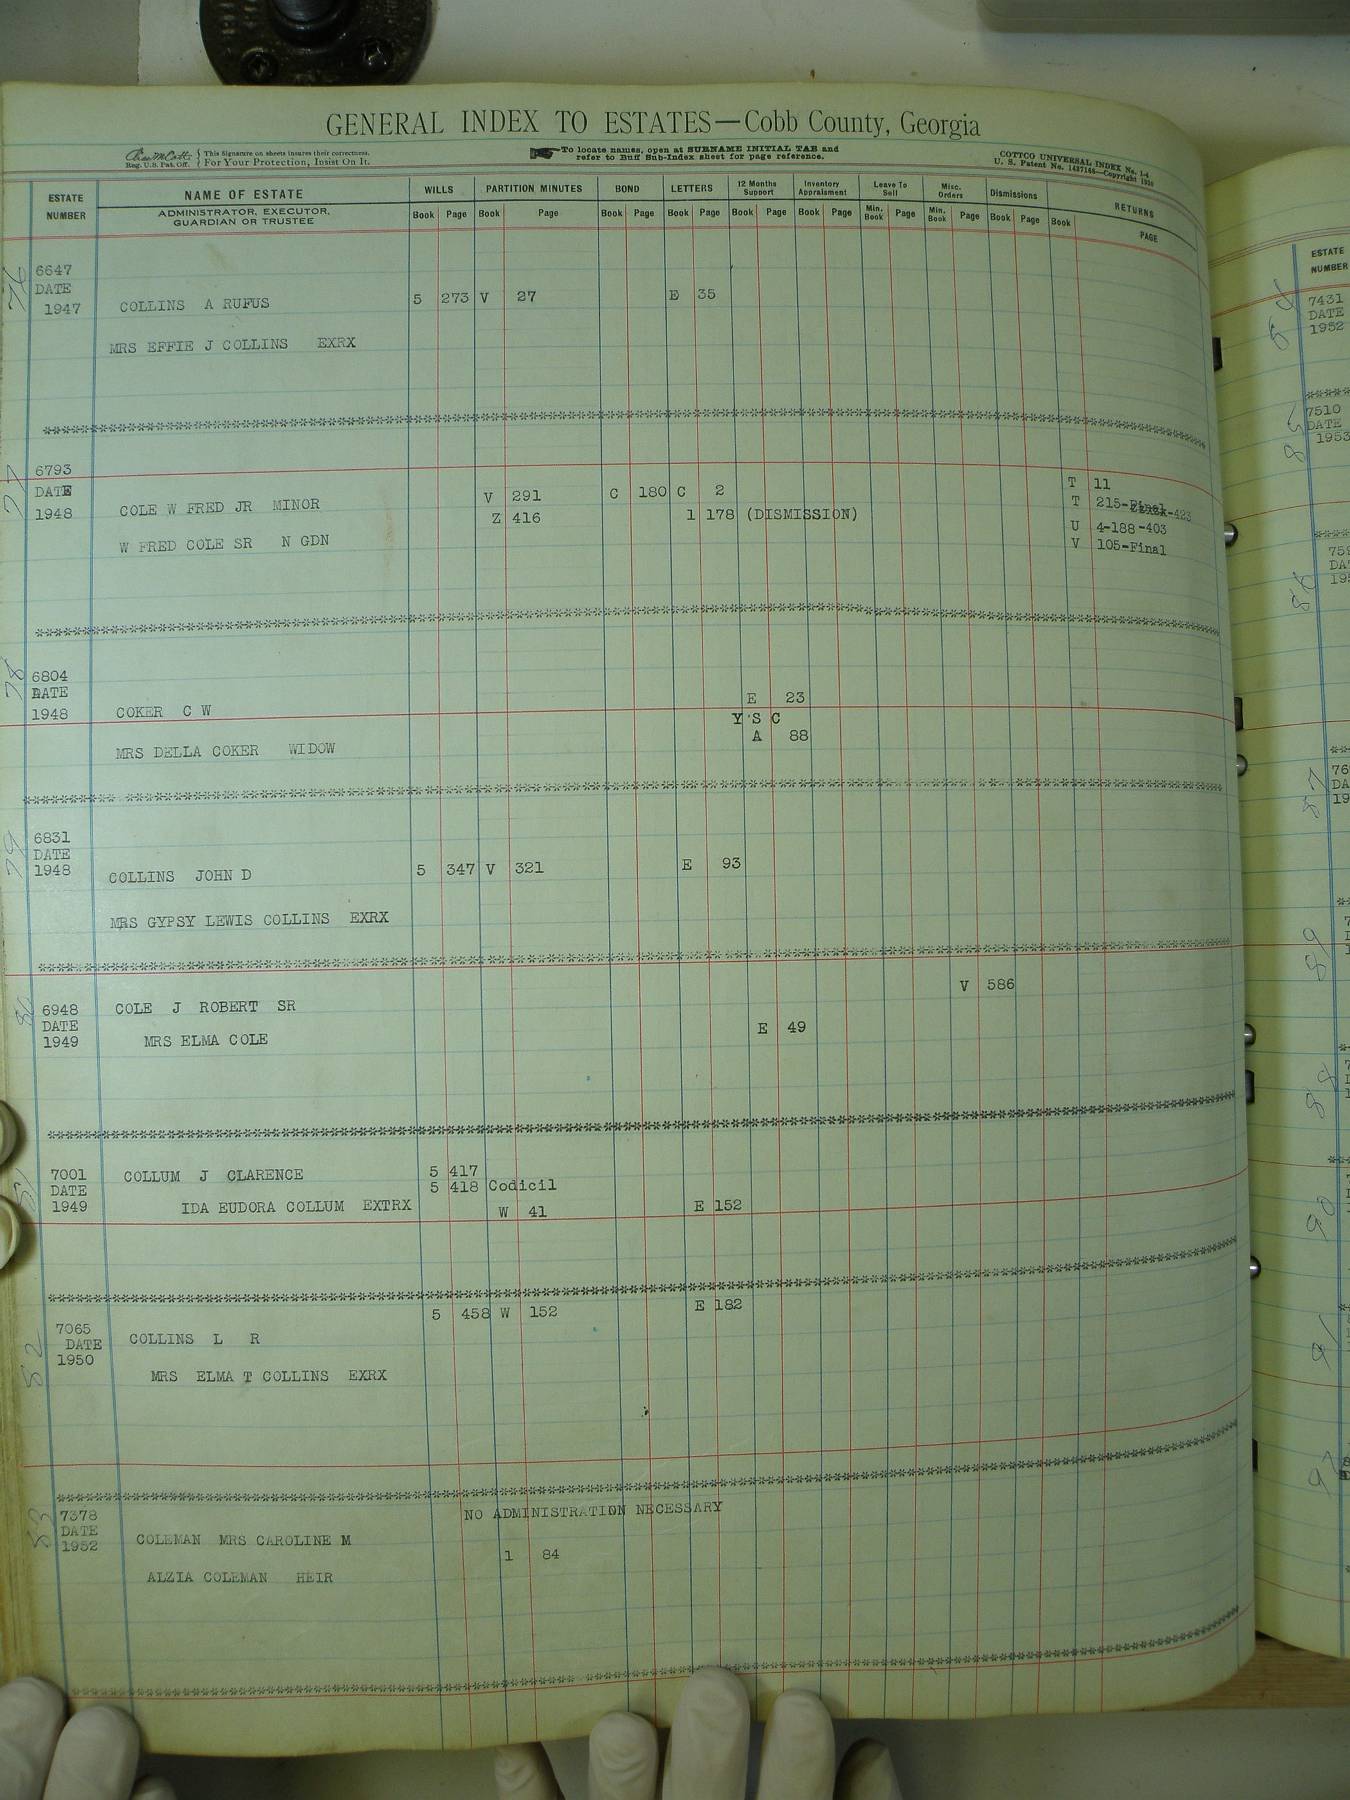 GENERAL INDEX TO ESTATES—Cobb County, Georgia
This Signature on sheets insures their correctness.
Reg. U.S. Pat. Off. For Your Protection, Insist On It.
To locate names, open at SURNAME INITIAL TAB and
refer to Buff Sub-Index sheet for page reference.
COTTCO UNIVERSAL INDEX No. 1-4
U. S. Patent No. 1497146—Copyright 1930
ESTATE NUMBER NAME OF ESTATE WILLS PARTITION MINUTES BOND LETTERS 12 Months Support Inventory Appraisment Leave To Sell Misc. Orders Dismissions RETURNS
ADMINISTRATOR, EXECUTOR, GUARDIAN OR TRUSTEE Book Page Book Page Book Page Book Page Book Page Book Page Min. Book Page Min. Book Page Book Page Book PAGE
76
6647
DATE
1947 COLLINS A RUFUS 5 273 V 27 E 35
MRS EFFIE J COLLINS EXRX
77
6793
DATE
1948 COLE W FRED JR MINOR V 291 C 180 C 2 T 11
Z 416 1 178 (DISMISSION) T 215-Final-423
W FRED COLE SR N GDN U 4-188-403
V 105-Final
78
6804
DATE
1948 COKER C W E 23
Y S C
MRS DELLA COKER WIDOW A 88
79
6831
DATE
1948 COLLINS JOHN D 5 347 V 321 E 93
MRS GYPSY LEWIS COLLINS EXRX
80
V 586
6948 COLE J ROBERT SR
DATE E 49
1949 MRS ELMA COLE
7001 COLLUM J CLARENCE 5 417
DATE 5 418 Codicil
1949 IDA EUDORA COLLUM EXTRX W 41 E 152
52
5 458 W 152 E 182
7065
DATE COLLINS L R
1950
MRS ELMA T COLLINS EXRX
53
7378 NO ADMINISTRATION NECESSARY
DATE
1952 COLEMAN MRS CAROLINE M
1 84
ALZIA COLEMAN HEIR
ESTATE
NUMBER
7431
DATE
1952
85
7510
DATE
1953
86
87
89
88
90
91